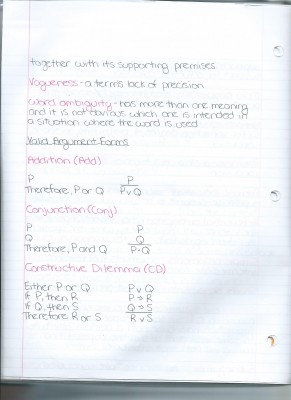 together with its supporting premises
Vagueness - a term's lack of precision
word ambiguity - has more than one meaning
and it is not obvious which one is intended in
a situation where the word is used
Valid Argument Forms
Addition (Add)
P P
Therefore, P or Q P v Q
Conjunction (Conj)
P P
Q Q
Therefore, P and Q P · Q
Constructive Dilemma (CD)
Either P or Q P v Q
If P, then R P ⊃ R
If Q, then S Q ⊃ S
Therefore R or S R v S